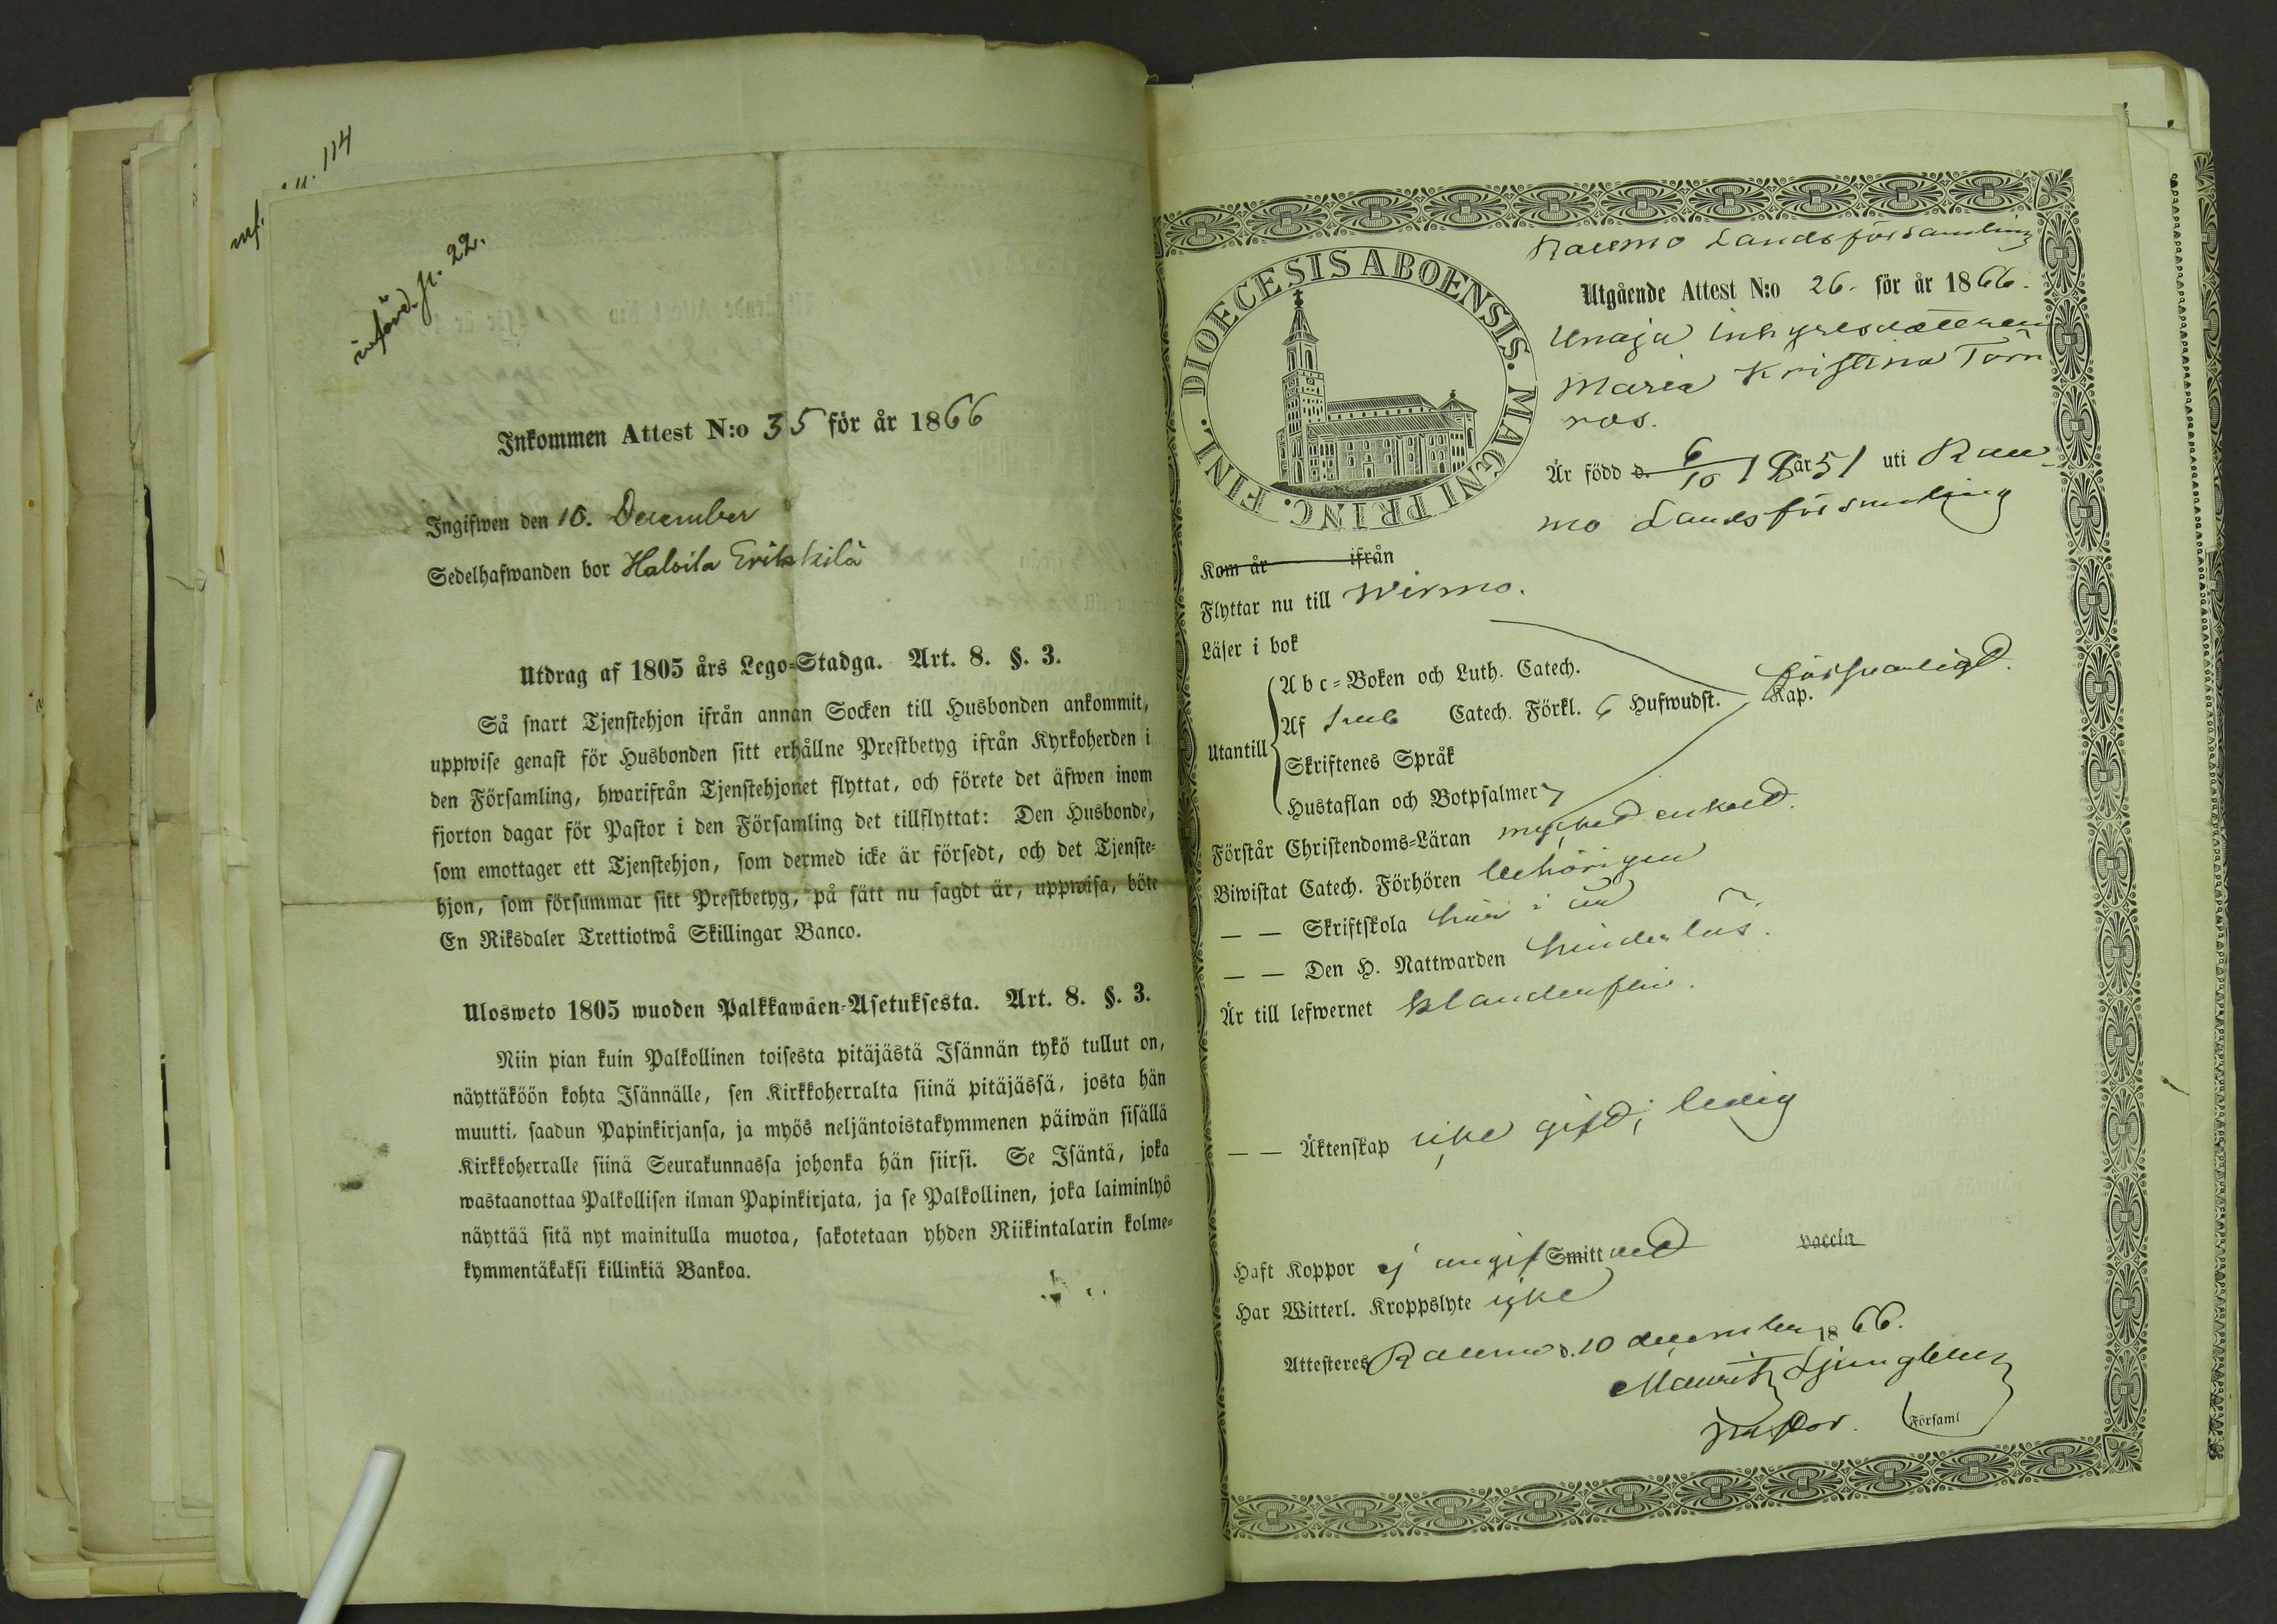 inf. 114
införd. p. 22.
Inkommen Attest N:o 35 för år 1866
Ingifwen den 16. December
Sedelhafwanden bor Haloila Erikkilä
Utdrag af 1805 års Lego-Stadga. Art. 8. §. 3.
Så snart Tjenstehjon ifrån annan Socken till Husbonden ankommit,
uppwise genast för Husbonden sitt erhållne Prestbetyg ifrån Kyrkoherden i
den Församling, hwarifrån Tjenstehjonet flyttat, och förete det äfwen inom
fjorton dagar för Pastor i den Församling det tillflyttat: Den Husbonde,
som emottager ett Tjenstehjon, som dermed icke är försedt, och det Tjenste-
hjon, som försummar sitt Prestbetyg, på sätt nu sagdt är, uppwisa, böte
En Riksdaler Trettiotwå Skillingar Banco.
Ulosweto 1805 wuoden Palkkawäen-Asetuksesta. Art. 8. §. 3.
Niin pian kuin Palkollinen toisesta pitäjästä Isännän tykö tullut on,
näyttäköön kohta Isännälle, sen Kirkkoherralta siinä pitäjässä, josta hän
muutti, saadun Papinkirjansa, ja myös neljäntoistakymmenen päiwän sisällä
Kirkkoherralle siinä Seurakunnassa johonka hän siirsi. Se Isäntä, joka
wastaanottaa Palkollisen ilman Papinkirjata, ja se Palkollinen, joka laiminlyö
näyttää sitä nyt mainitulla muotoa, sakotetaan yhden Riikintalarin kolme-
kymmentäkaksi killinkiä Bankoa.
DIOECESIS ABOENSIS. MAGNI PRINC. FINL.
Raumo Landsförsamling
Utgående Attest N:o 26. för år 1866.
Unaja inhysesdotteren
Maria Kristina Törn
ros.
Är född d. 6/10 18år51 uti Rau-
mo Landsförsamling
Kom år ifrån
Flyttar nu till Wirmo.
Läser i bok
Abc-Boken och Luth. Catech. försvarligt.
Utantill Af Catech. Förkl. 6 Hufwudst. Kap.
Skriftenes Språk
Hustaflan och Botpsalmer
Förstår Christendoms-Läran mycket enkelt.
Biwistat Catech. Förhören behörigen
— — Skriftskola här i
— — Den H. Nattwarden hinderlös.
Är till lefwernet klanderfri.
— — Äktenskap icke gift; ledig
Haft Koppor ej angif Smitt vet vaccin
Har Witterl. Kroppslyte icke
Attesteres Raumo d. 10 december 1866.
Mauritz Ljungberg
pastor. Församl